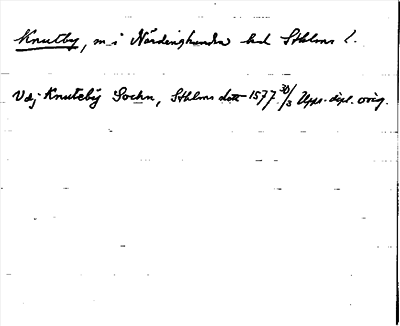 Knutby, sn i Närdinghundra hd Sthlms l.
Vdj Knutebÿ Sockn, Sthlms dott 1577 30/3 Upps. dipl. orig.